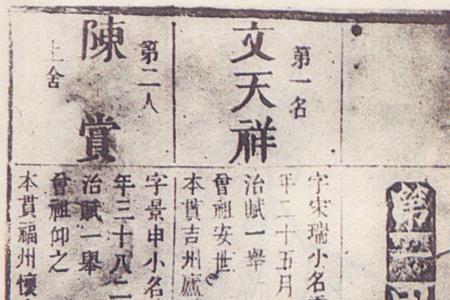 第一甲
第一名
文天祥
字宋瑞小名
年二十五月
治賦一舉
曾祖安世
本貫吉州廬
第二人
陳賞
上舍
字景申小名
年三十八二
治賦一舉
曾祖仰之
本貫福州懷